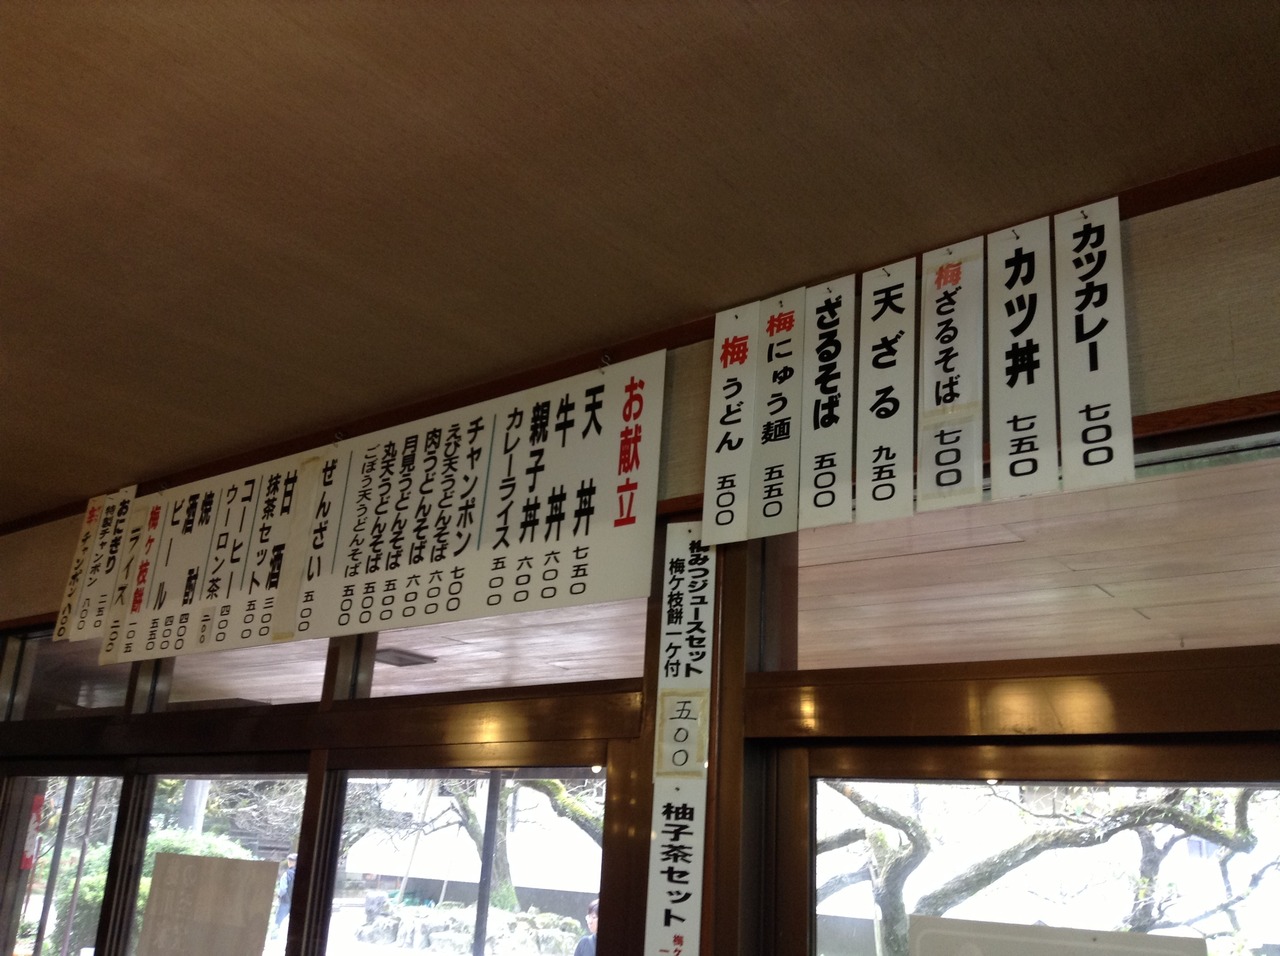 カツカレー 七〇〇
カツ丼 七五〇
梅ざるそば 七〇〇
天ざる 九五〇
ざるそば 五〇〇
梅にゅう麺 五五〇
梅うどん 五〇〇
お献立
天丼 七五〇
牛丼 六〇〇
親子丼 六〇〇
カレーライス 五〇〇
チャンポン 七〇〇
えび天うどんそば 六〇〇
肉うどんそば 六〇〇
月見うどんそば 五〇〇
丸天うどんそば 五〇〇
ごぼう天うどんそば 五〇〇
ぜんざい 五〇〇
甘酒 三〇〇
抹茶セット 五〇〇
コーヒー 四〇〇
ウーロン茶 二〇〇
焼酎 四〇〇
酒 四〇〇
ビール 五五〇
梅ヶ枝餅 一〇五
ライス 二〇〇
おにぎり 二五〇
特製チャンポン 八〇〇
チャンポン 八〇〇
梅みつジュースセット
梅ケ枝餅一ケ付
五〇〇
柚子茶セット